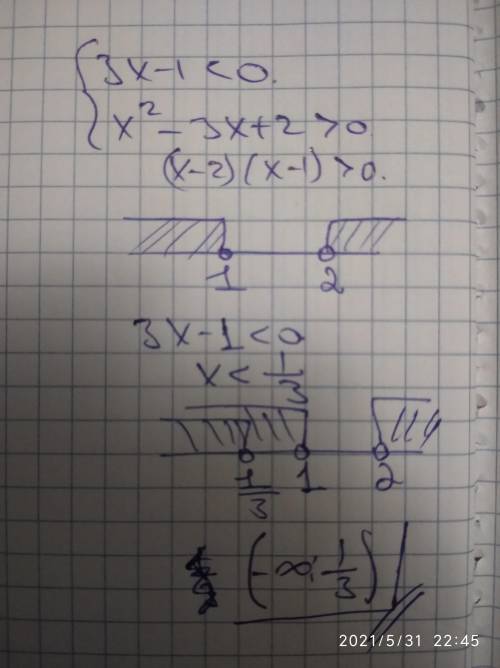 { 3x-1<0.
x²-3x+2>0
(x-2)(x-1)>0.
1 2
3x-1<0
x<1/3
1/3 1 2
(-∞; 1/3)
2021/5/31 22:45